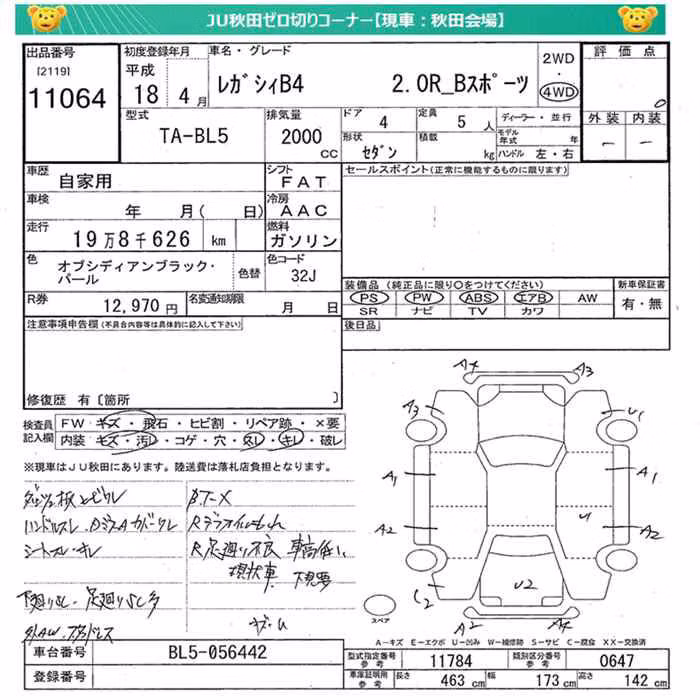 JU秋田ゼロ切りコーナー【現車：秋田会場】
出品番号 初度登録年月 車名・グレード 2WD 評価点
[2119] 平成
11064 18 4 月 レガシィB4 2.0R_Bスポーツ 4WD 0
外装 内装
型式 排気量 ドア 4 定員 5 人 ディーラー・並行
TA-BL5 2000 cc 形状 セダン 積載 kg モデル年式 年
ハンドル 左・右 － －
車歴 シフト セールスポイント(正常に機能するものに限ります)
自家用 FAT
車検 年 月( 日) 冷房 AAC
走行 19万8千626 km 燃料 ガソリン
色 オブシディアンブラック・パール 色替 色コード 32J
装備品 (純正品に限り○をつけてください) 新車保証書
R券 12,970 円 名変通知期限 月 日 PS PW ABS エアB AW 有・無
SR ナビ TV カワ
注意事項申告欄(不具合内容等は具体的に記入して下さい) 後日品
修復歴 有〔箇所 〕
検査員記入欄 FW キズ・飛石・ヒビ割・リペア跡・×要
内装 キズ・汚レ・コゲ・穴・スレ・キレ・破レ
※現車はJU秋田にあります。陸送費は落札店負担となります。
ハンドルスレ
シートスレ・キレ
R足廻り不良 車高低い
現状車
A4 A3
A3 U1
A1 A1
A2 U1 A2
C2 U2
A2 A4
スペア
A－キズ E－エクボ U－凹み W－補修跡 S－サビ C－腐食 XX－交換済
車台番号 BL5-056442 型式指定番号 参考 11784 類別区分番号 参考 0647
登録番号 車庫証明用 参考 長さ 463 cm 幅 173 cm 高さ 142 cm